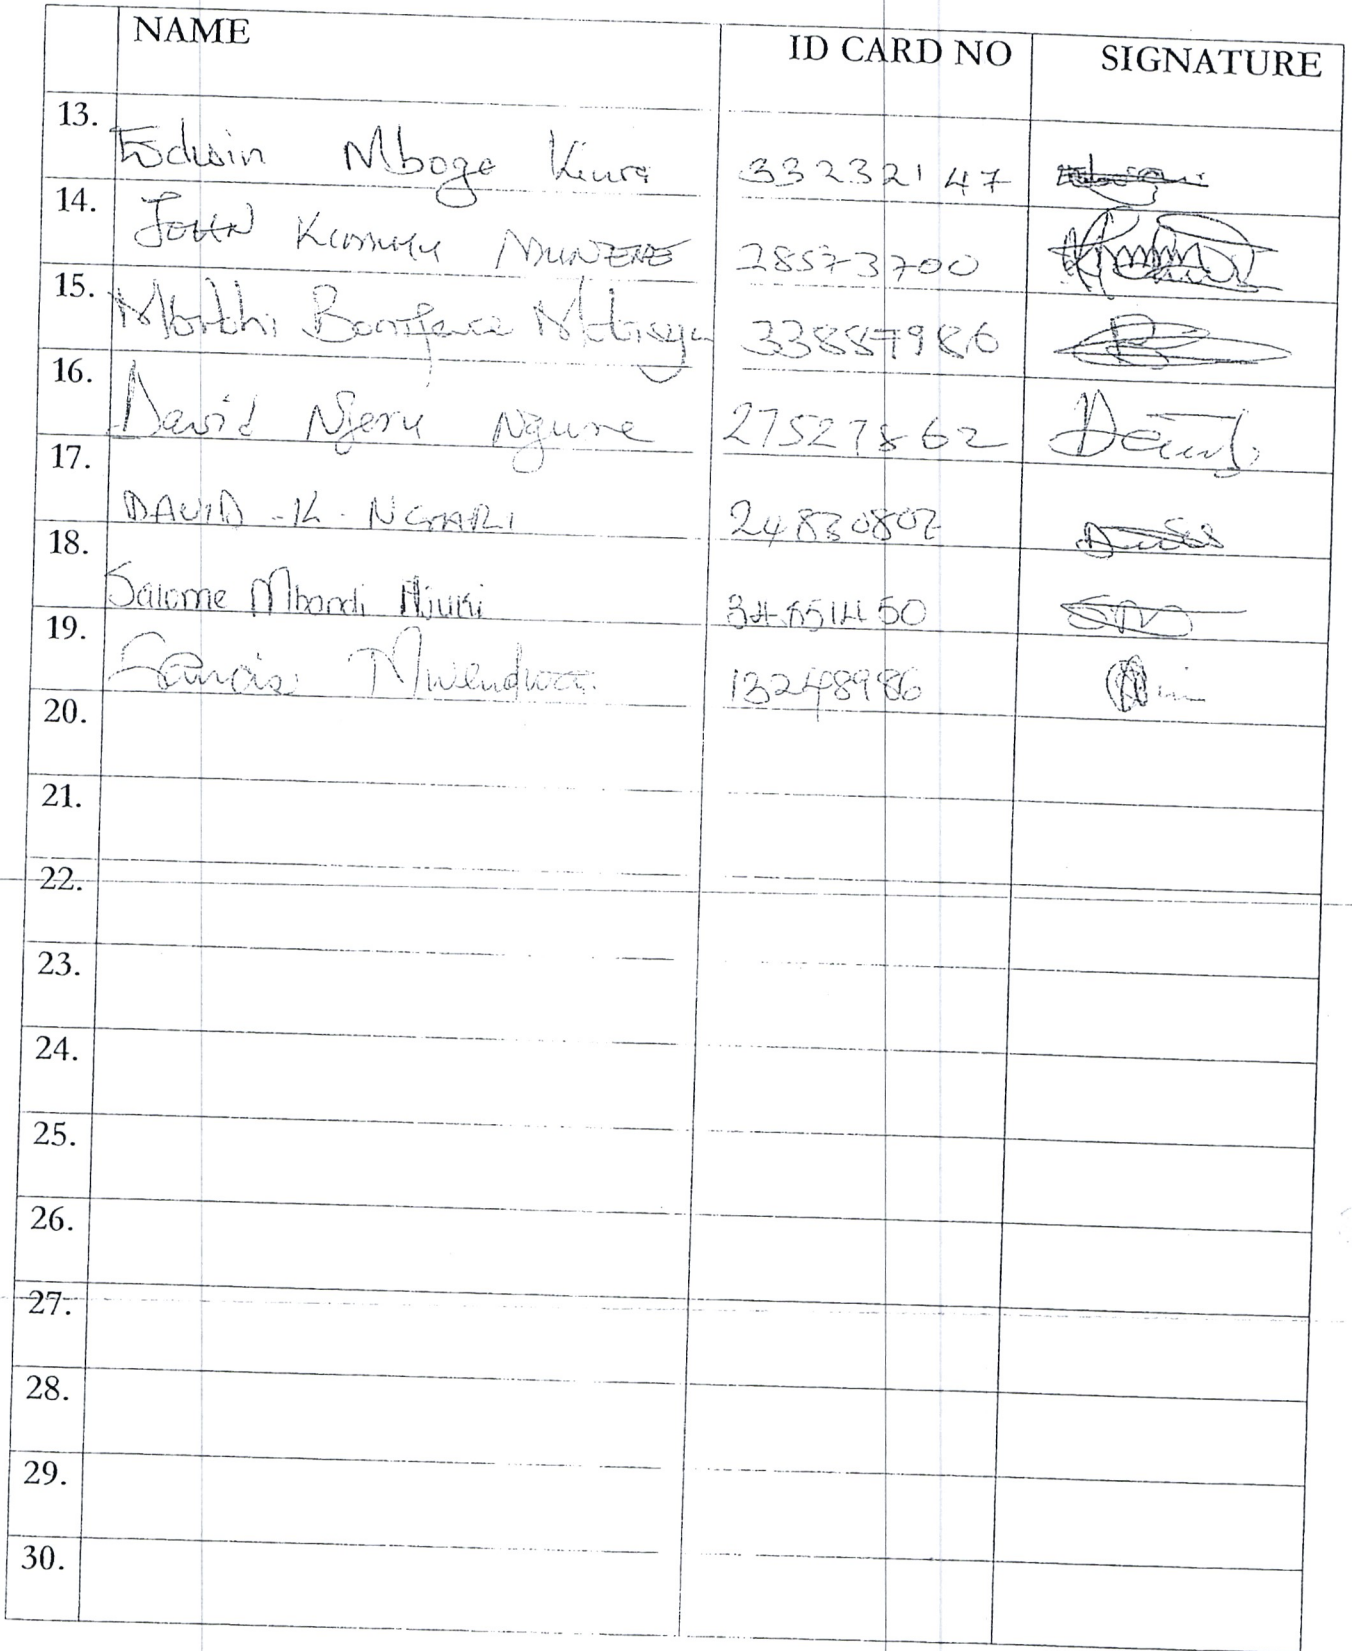 NAME ID CARD NO SIGNATURE
13. Edwin Mboge Kiura 33232147
14. JOHN MUNENE 28573700
15. Boniface 33887986
16. David Njeru Ngure 27527862
17. DAVID - K - NGARI 24830802
18. Salome Mbandi Njuki 34551450
19. Francis Mwendwa 13248986
20.
21.
22.
23.
24.
25.
26.
27.
28.
29.
30.